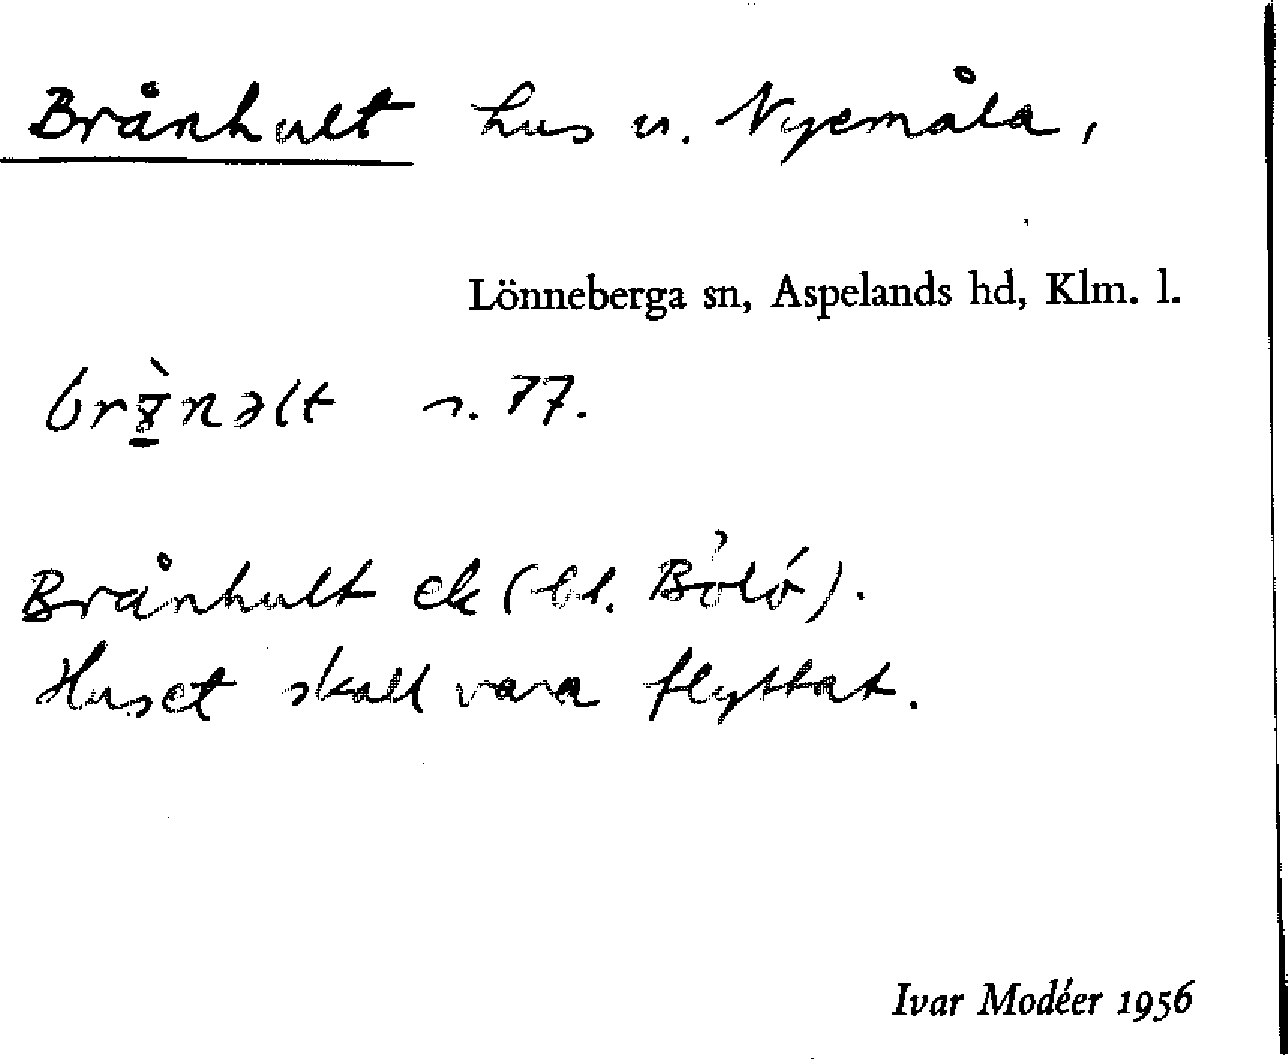 Brånhult hus u. Nyemåla,
Lönneberga sn, Aspelands hd, Klm. l.
s. 77.
Brånhult ek (bl. Bölö).
Huset skall vara flyttat.
Ivar Modéer 1956